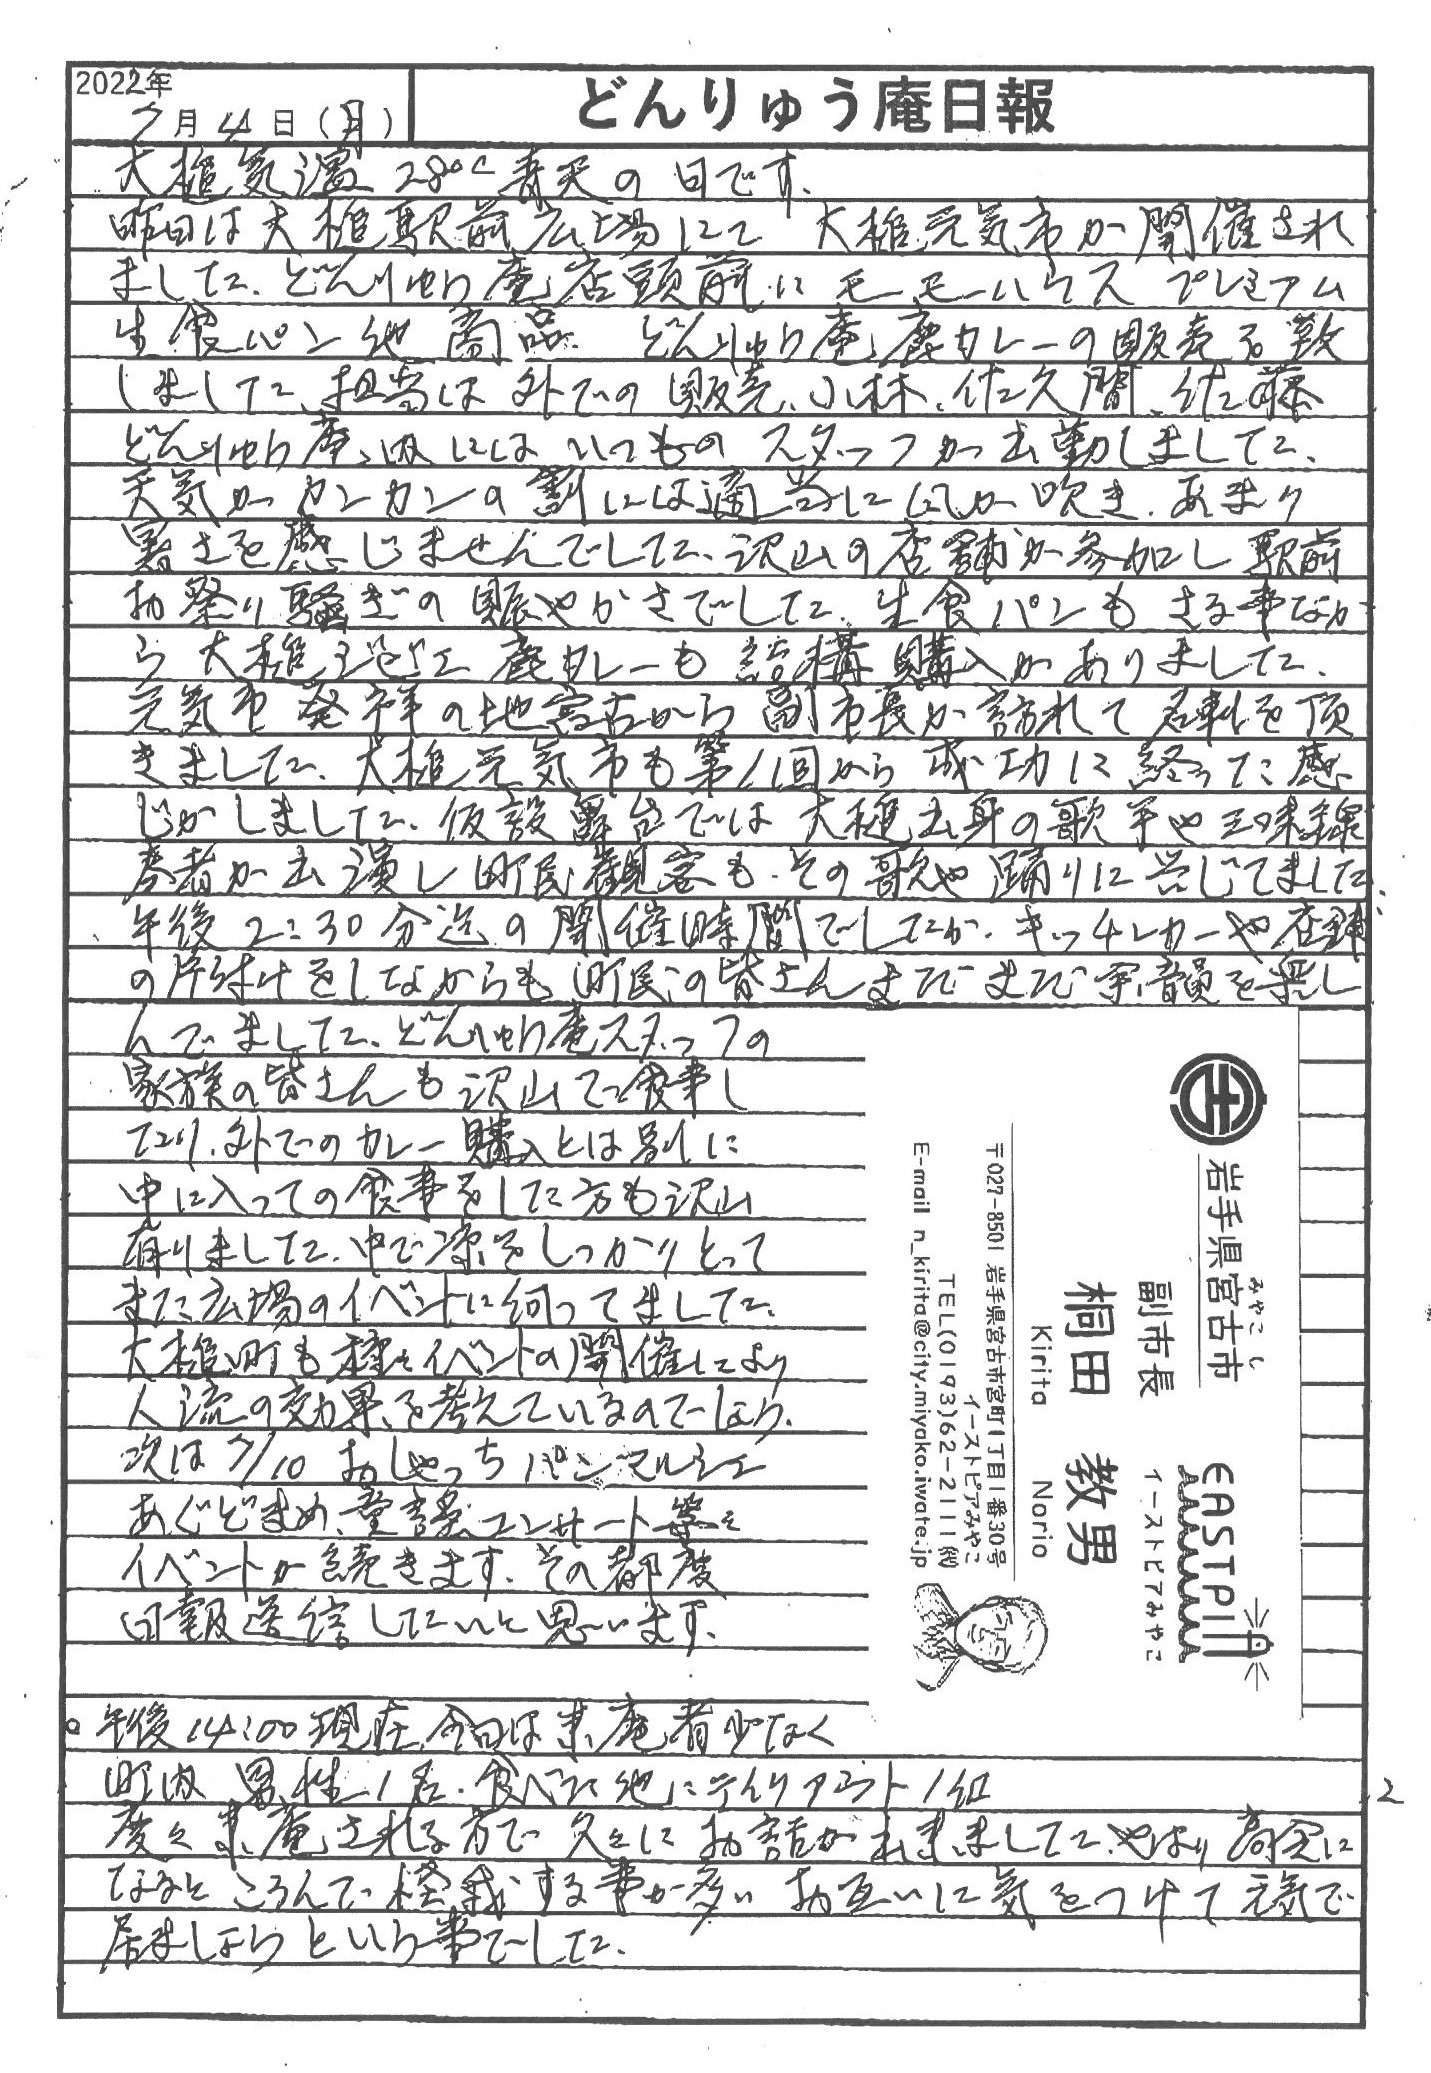 2022年
7月4日(月)
どんりゅう庵日報
大槌気温 28℃ 春天の日です。
昨日は大槌駅前広場にて 大槌元気市が開催され
ました。どんりゅう庵店頭前にモーモーハウス プレミアム
生食パン他商品 どんりゅう庵鹿カレーの販売を致
しました。担当は外での販売、小林、佐久間、佐藤
どんりゅう庵内にはいつものスタッフが出勤しました。
天気がカンカンの割には適当に風が吹き、あまり
暑さを感じませんでした。沢山の店舗が参加し駅前
お祭り騒ぎの賑やかさでした。生食パンもさる事なが
ら大槌ジビエ鹿カレーも結構購入がありました。
元気市発祥の地宮古から副市長が訪れて名刺を頂
きました。大槌元気市も第1回から成功に終った感
じがしました。仮設舞台では大槌出身の歌手や三味線
奏者が出演し町民観客も、その歌や踊りに興じてました。
午後2:30分迄の開催時間でしたが、キッチンカーや店舗
の片付けをしながらも町民の皆さんまだまだ余韻を楽し
んでました。どんりゅう庵スタッフの
家族の皆さんも沢山で食事し
たり、外でのカレー購入とは別に
中に入っての食事をした方も沢山
有りました。中で涼をしっかりとって
また広場のイベントに伺ってました。
大槌町も種々イベントの開催により
人流の効果を考えているのでしょう。
次は7/10 おしゃっちパンマルシェ
あぐどまめ、童謡コンサート等々
イベントが続きます。その都度
日報送信したいと思います。
岩手県宮古市
みやこし
副市長
桐田 教男
Kirita Norio
〒027-8501 岩手県宮古市宮町1丁目1番30号
イーストピアみやこ
TEL(0193)62-2111(代)
E-mail n_kirita@city.miyako.iwate.jp
EASTPIA
イーストピアみやこ
○午後14:00現在、今日は来庵者少なく
町内 男性1名、食べた他にテイクアウト1組
度々来庵される方で久々にお話が出来ました。やはり高令に
なるところんで怪我する事が多い お互いに気をつけて元気で
居ましょうという事でした。
2